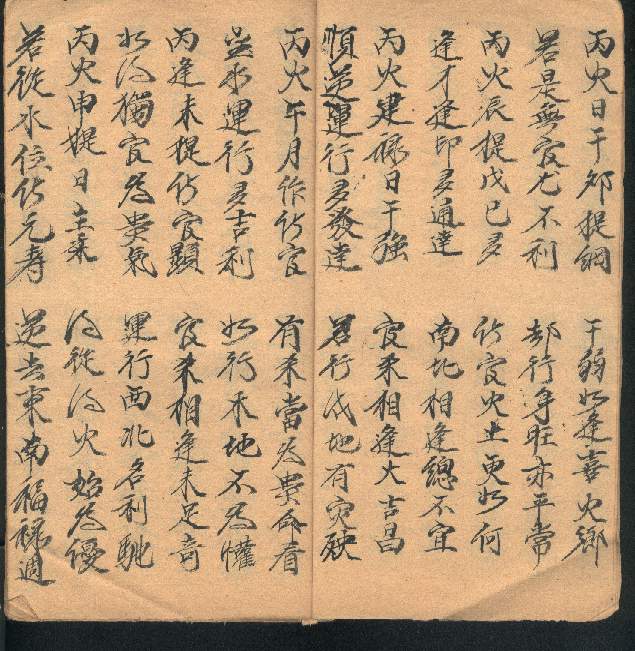 丙火日干卯提綱　干弱如逢喜火鄉
若是無官尤不利　却行身旺亦平常
丙火辰提戊己多　作官火土更如何
逢才逢印多通達　南北相逢總不宜
丙火建祿日干強　官柔相逢大吉昌
順逆運行多發達　若行戌地有灾殃
丙火午月作作官　有柔當為貴命看
無水運行多吉利　如行木地不為懽
丙逢未提作官顯　官柔相逢未足奇
如得獨官為貴氣　運行西北名利馳
丙火申提日主柔　得從得火始為優
若從水位作元壽　逆去東南福祿週